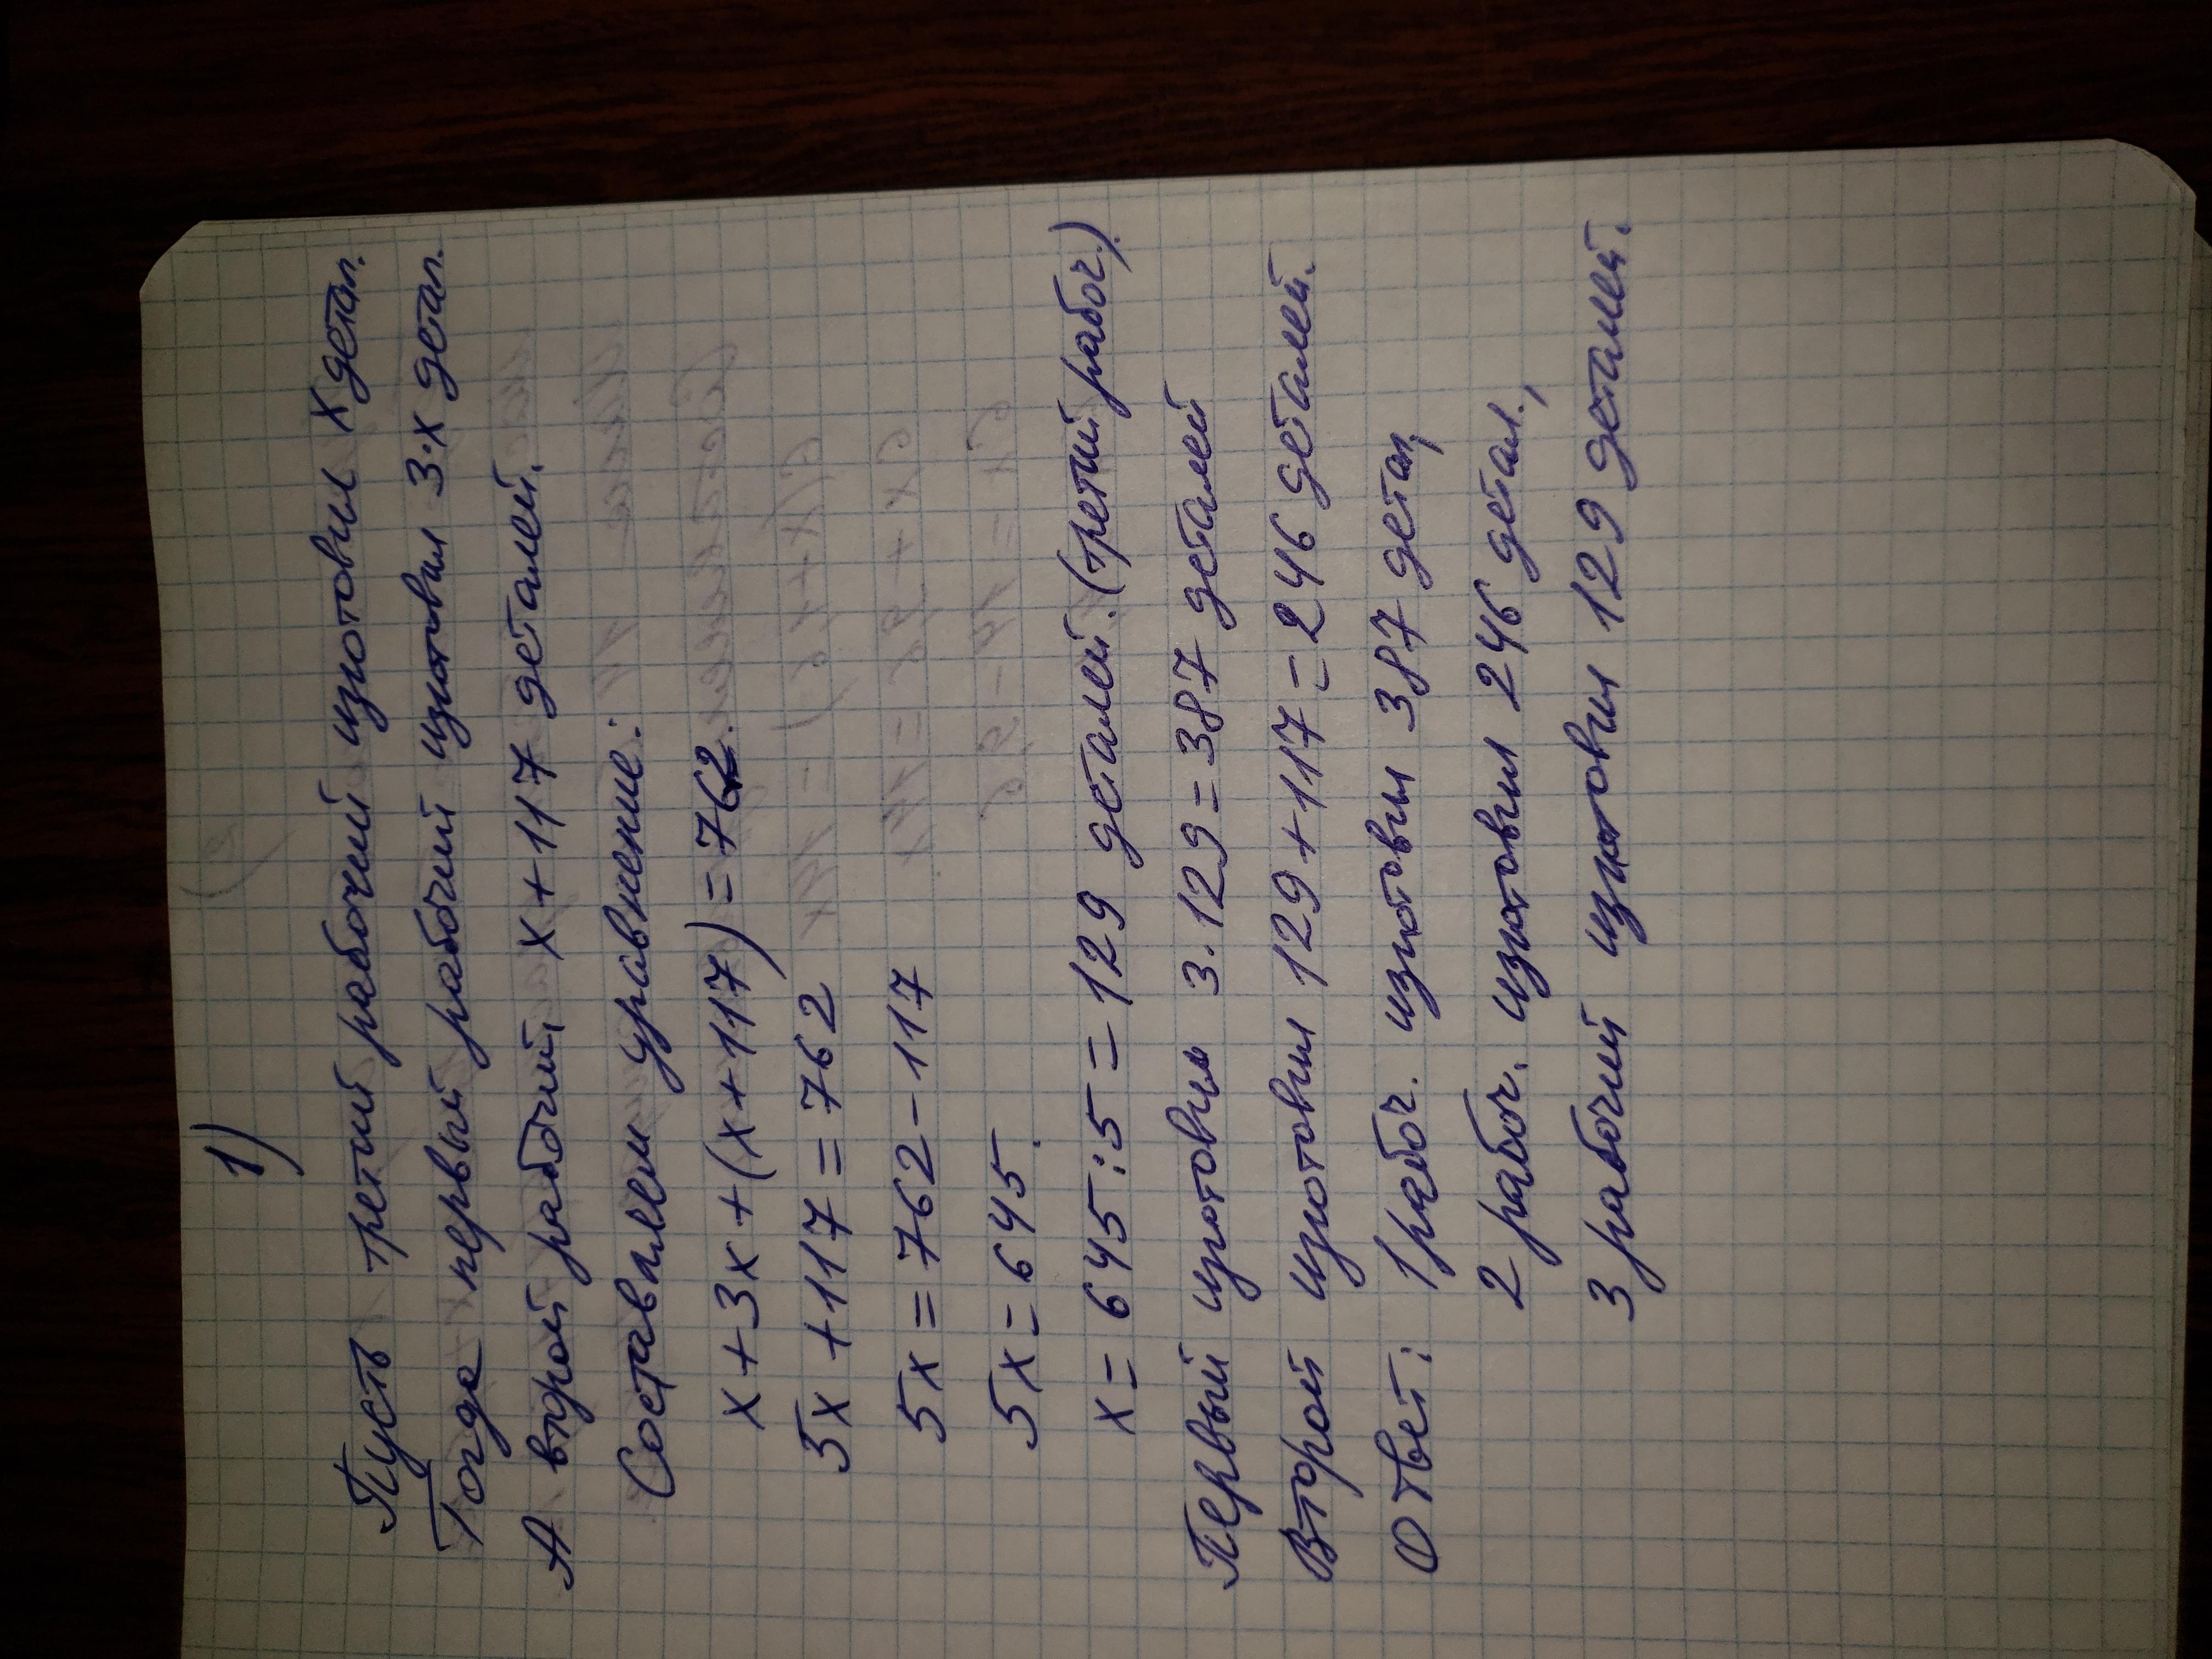 1)
Пусть третий рабочий изготовил x детал.
Тогда первый рабочий изготовил 3·x детал.
А второй рабочий, x+117 деталей.
Составляем уравнение:
x+3x+(x+117)=762.
5x+117=762
5x=762-117
5x=645.
x=645:5=129 деталей.(третий рабоч.)
Первый изготовил 3·129=387 деталей
Второй изготовил 129+117=246 деталей.
Ответ: 1 рабоч. изготовил 387 детал,
2 рабоч. изготовил 246 детал.,
3 рабочий изготовил 129 деталей.